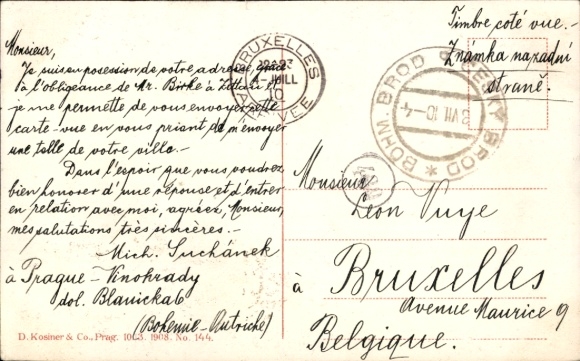 Monsieur,
Je suis en posession de votre adresse, grâce
à l'obligeance de Mr. Birke à Zittau et
je me permette de vous envoyer cette
carte-vue en vous priant de m'envoyer
une telle de votre ville.-
Dans l'espoir que vous voudrez
bien honorer d'une réponse et d'entrer
en relation avec moi, agréez, Monsieur,
mes salutations très sincères.-
Mich. Suchánek
à Prague-Vinohrady
dol. Blanická 6
(Bohemie-Autriche)
D. Kosiner & Co., Prag. 1908. No. 144.
BRUXELLES
4-JUIL
10
ARRIVEE
BÖHM. BROD * ČESKÝ BROD *
3 VII 10-4
Timbre côté vue.-
Známka na zadní
straně.-
Monsieur
Léon Vuye
à Bruxelles
Avenue Maurice 9
Belgique.